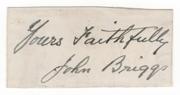 Yours Faithfully
John Briggs